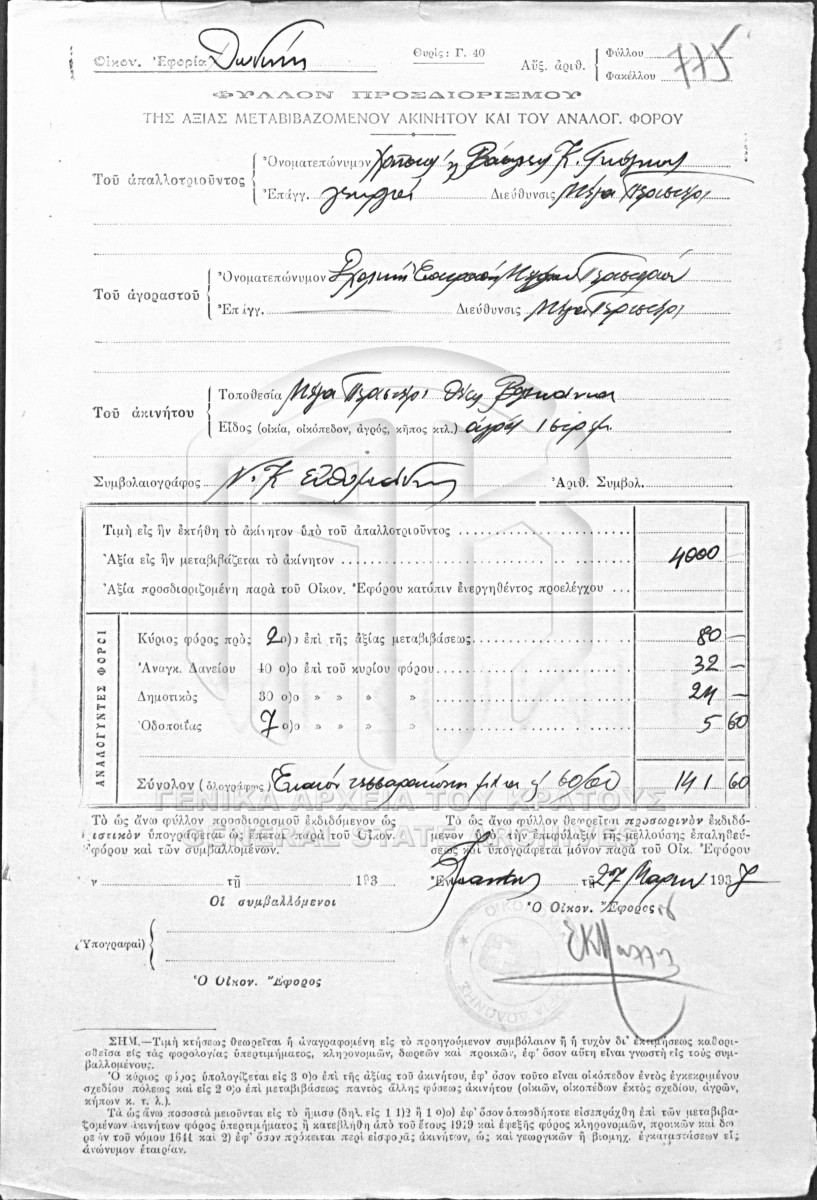 Οἰκον. Ἐφορία Δωδώνης
Θυρίς: Γ. 40
Αὔξ. ἀριθ. Φύλλου
Φακέλλου 775
ΦΥΛΛΟΝ ΠΡΟΣΔΙΟΡΙΣΜΟΥ
ΤΗΣ ΑΞΙΑΣ ΜΕΤΑΒΙΒΑΖΟΜΕΝΟΥ ΑΚΙΝΗΤΟΥ ΚΑΙ ΤΟΥ ΑΝΑΛΟΓ. ΦΟΡΟΥ
Τοῦ ἀπαλλοτριοῦντος
Ὀνοματεπώνυμον Κ.
Ἐπάγγ. Διεύθυνσις Μέγα Περιστέρι
Τοῦ ἀγοραστοῦ
Ὀνοματεπώνυμον Σχολική Ἐπιτροπή Περιστερίου
Ἐπάγγ. Διεύθυνσις Μέγα Περιστέρι
Τοῦ ἀκινήτου
Τοποθεσία Μέγα Περιστέρι θέσις
Εἶδος (οἰκία, οἰκόπεδον, ἀγρός, κῆπος κτλ.) ἀγρός 1
Συμβολαιογράφος Ν. Κ. Εὐθυμιάδης Ἀριθ. Συμβολ.
Τιμὴ εἰς ἣν ἐκτήθη τὸ ἀκίνητον ὑπὸ τοῦ ἀπαλλοτριοῦντος
Ἀξία εἰς ἣν μεταβιβάζεται τὸ ἀκίνητον 4000
Ἀξία προσδιοριζομένη παρὰ τοῦ Οἰκον. Ἐφόρου κατόπιν ἐνεργηθέντος προελέγχου
ΑΝΑΛΟΓΟΥΝΤΕΣ ΦΟΡΟΙ
Κύριος φόρος πρὸς 2 ο)ο ἐπὶ τῆς ἀξίας μεταβιβάσεως 80 —
Ἀναγκ. Δανείου 40 ο)ο ἐπὶ τοῦ κυρίου φόρου 32 —
Δημοτικὸς 30 ο)ο » » » » 24 —
Ὁδοποιΐας 7 ο)ο » » » » 5 60
Σύνολον (ὁλογράφως) Ἑκατόν τεσσαράκοντα μία καὶ 60/00 141 60
ΓΕΝΙΚΑ ΑΡΧΕΙΑ ΤΟΥ ΚΡΑΤΟΥΣ
GENERAL STATE ARCHIVES
Τὸ ὡς ἄνω φύλλον προσδιορισμοῦ ἐκδιδόμενον ὡς
ριστικὸν ὑπογράφεται ὡς ἕπεται παρὰ τοῦ Οἰκον.
Ἐφόρου καὶ τῶν συμβαλλομένων.
Τὸ ὡς ἄνω φύλλον θεωρεῖται προσωρινὸν ἐκδιδό-
μενον ὑπὸ τὴν ἐπιφύλαξιν τῆς μελλούσης ἐπαληθεύ-
σεως καὶ ὑπογράφεται μόνον παρὰ τοῦ Οἰκ. Ἐφόρου
ν τῇ 193
Ἐν Ἰωαννίνοις τῇ 27 Μαρτίου 1937
Οἱ συμβαλλόμενοι
Ὁ Οἰκον. Ἔφορος
(Ὑπογραφαὶ)
Ὁ Οἰκον. Ἔφορος
ΣΗΜ.—Τιμὴ κτήσεως θεωρεῖται ἡ ἀναγραφομένη εἰς τὸ προηγούμενον συμβόλαιον ἢ ἡ τυχὸν δι' ἐκτιμήσεως καθορι-
σθεῖσα εἰς τὰς φορολογίας ὑπερτιμήματος, κληρονομιῶν, δωρεῶν καὶ προικῶν, ἐφ' ὅσον αὕτη εἶναι γνωστὴ εἰς τοὺς συμ-
βαλλομένους.
Ὁ κύριος φόρος ὑπολογίζεται εἰς 3 ο)ο ἐπὶ τῆς ἀξίας τοῦ ἀκινήτου, ἐφ' ὅσον τοῦτο εἶναι οἰκόπεδον ἐντὸς ἐγκεκριμένου
σχεδίου πόλεως καὶ εἰς 2 ο)ο ἐπὶ μεταβιβάσεως παντὸς ἄλλης φύσεως ἀκινήτου (οἰκιῶν, οἰκοπέδων ἐκτὸς σχεδίου, ἀγρῶν,
κήπων κ. τ. λ.).
Τὰ ὡς ἄνω ποσοστὰ μειοῦνται εἰς τὸ ἥμισυ (δηλ. εἰς 1 1)2 ἢ 1 ο)ο) ἐφ' ὅσον ὁπωσδήποτε εἰσεπράχθη ἐπὶ τῶν μεταβιβα-
ζομένων ἀκινήτων φόρος ὑπερτιμήματος ἢ κατεβλήθη ἀπὸ τοῦ ἔτους 1919 καὶ ἐφεξῆς φόρος κληρονομιῶν, προικῶν καὶ δω
ρεῶν τοῦ νόμου 1641 καὶ 2) ἐφ' ὅσον πρόκειται περὶ εἰσφορᾶς ἀκινήτων, ὡς καὶ γεωργικῶν ἢ βιομηχ. ἐγκαταστάσεων εἰς
ἀνώνυμον ἑταιρίαν.